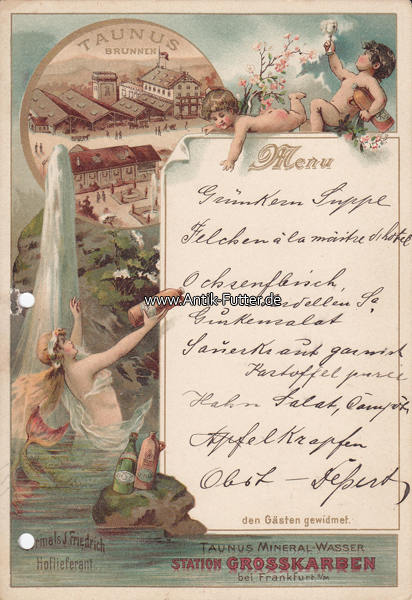 TAUNUS
BRUNNEN
Menu
Grünkern Suppe
Felchen à la maitre d'hotel
Ochsenfleisch,
www.Antik-Futter.de
Sardellen Sa
Gurkensalat
Sauerkraut garnirt
Kartoffel puree
Hahn Salat, Comp
Apfelkrapfen
Obst – Deßert,
den Gästen gewidmet.
rmals J. Friedrich
Hoflieferant.
TAUNUS MINERAL-WASSER
STATION GROSSKARBEN
bei Frankfurt a/M